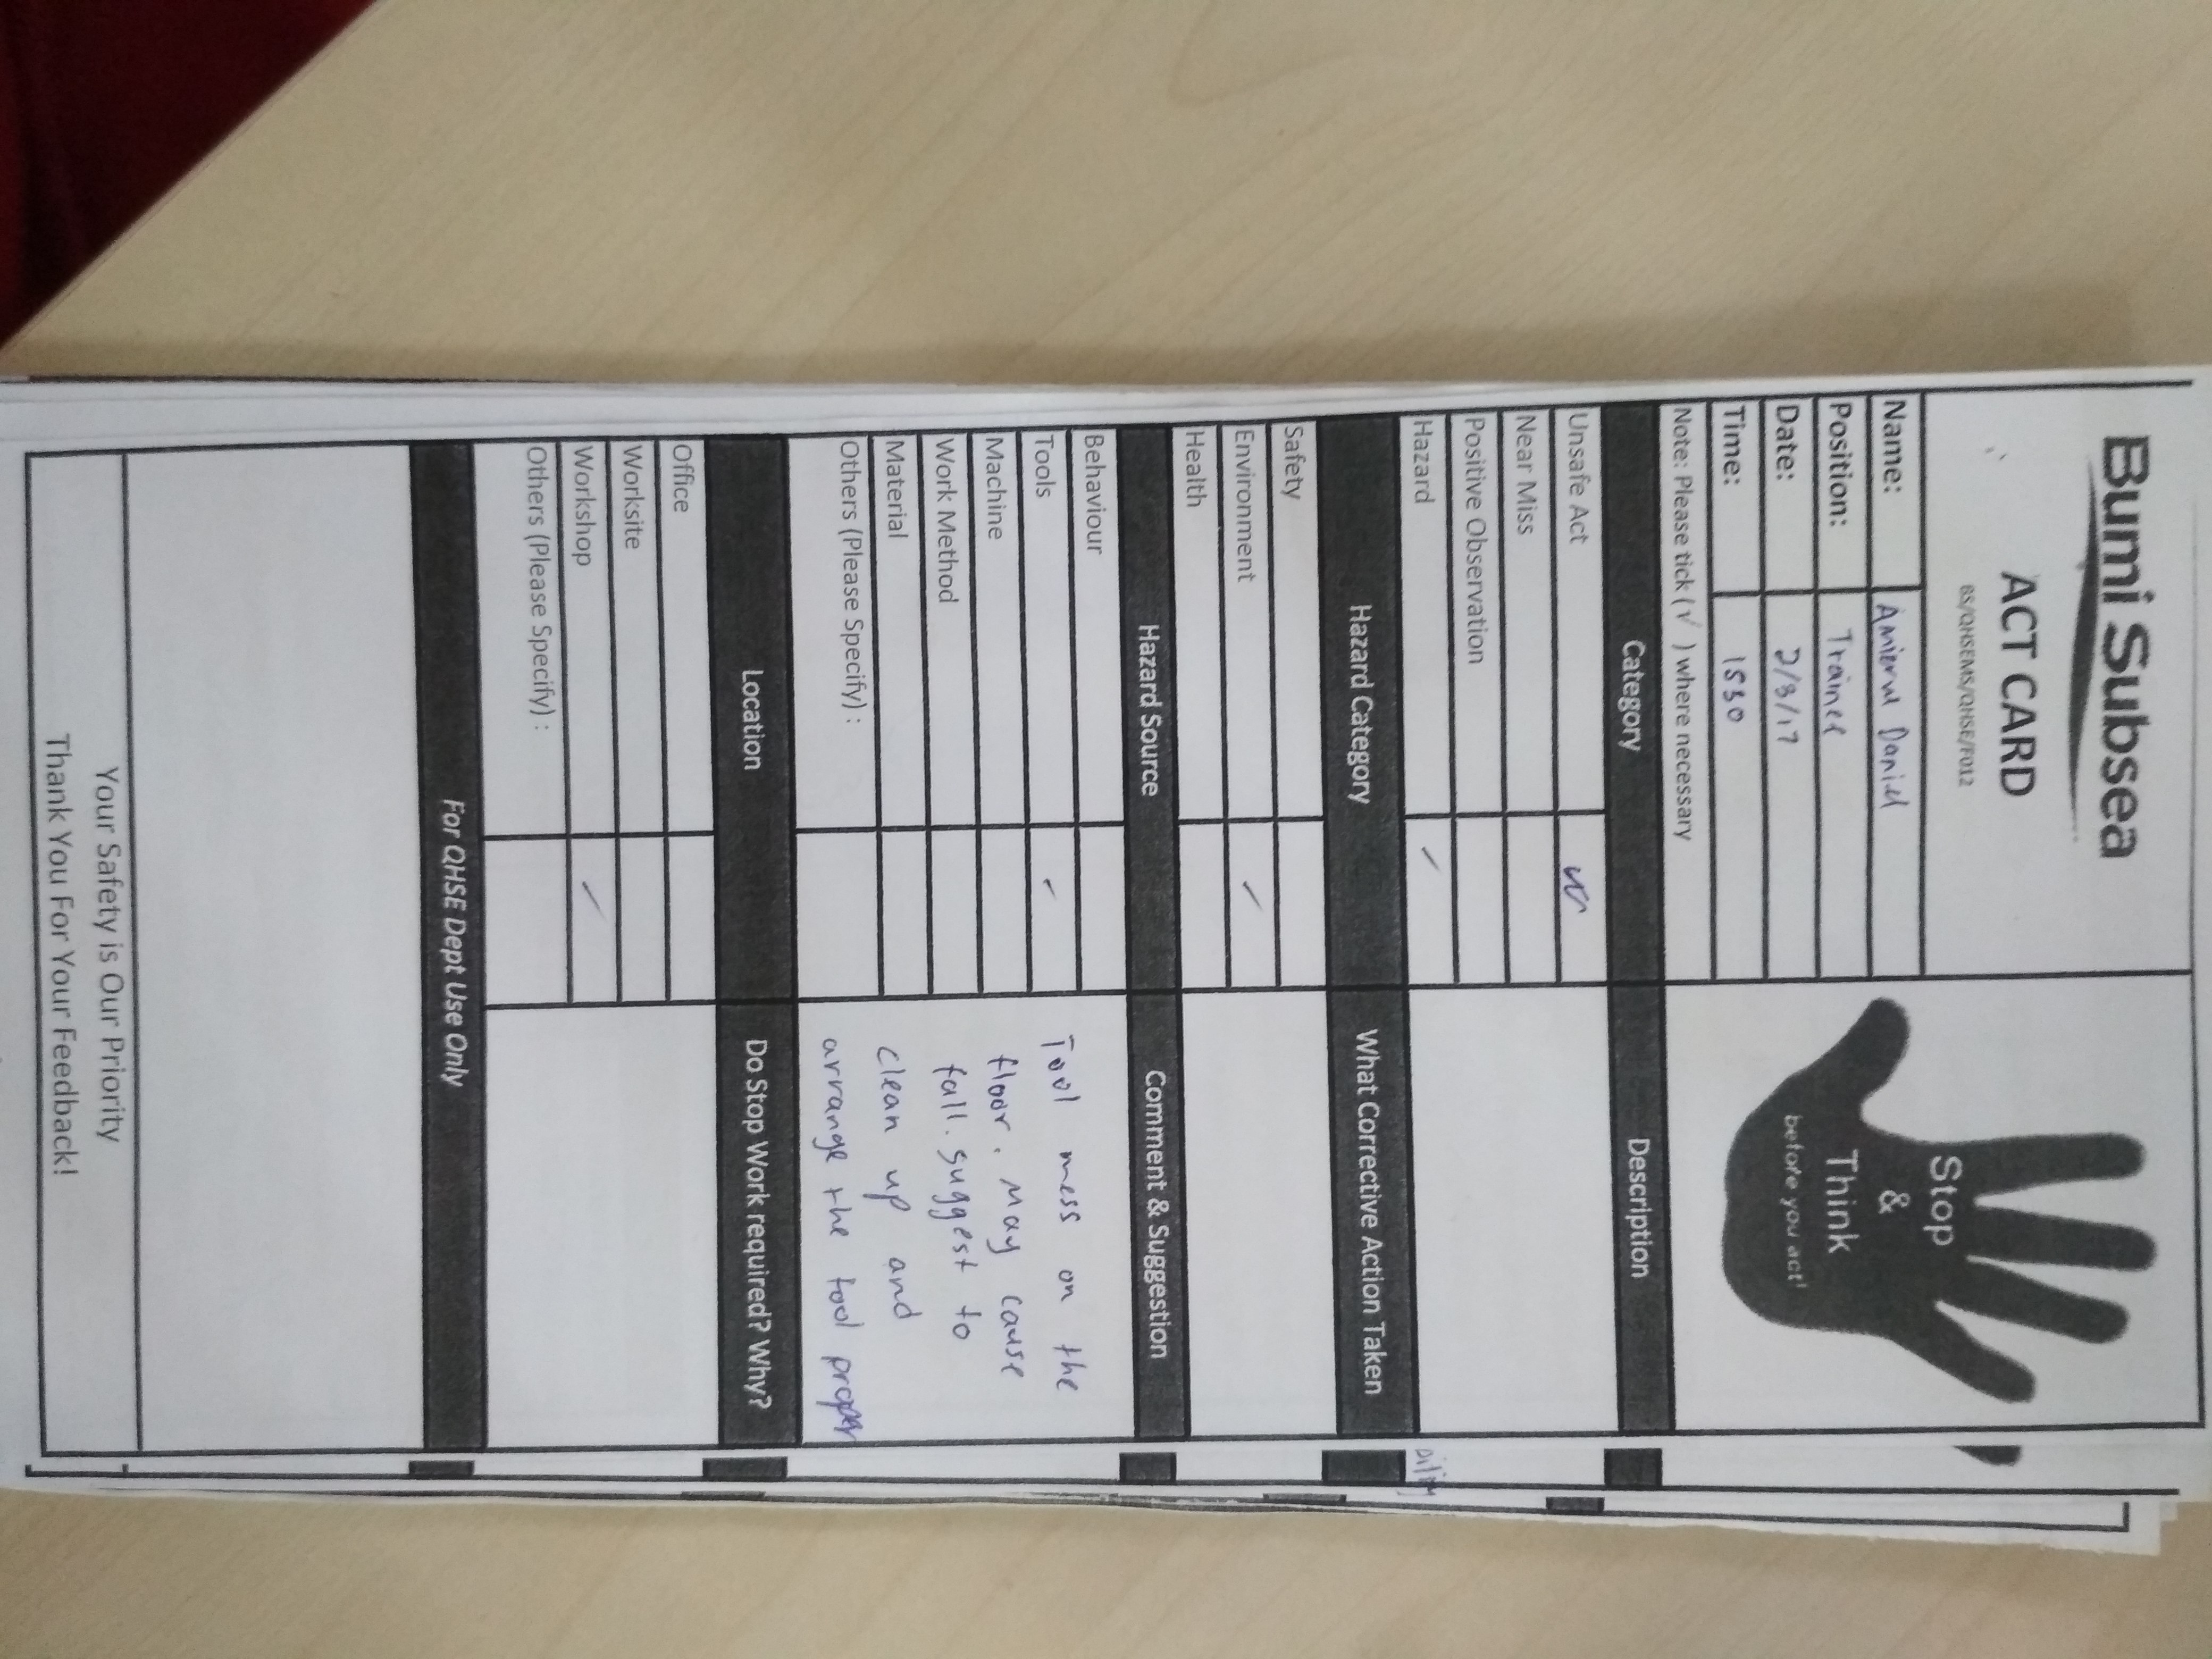 Bumi Subsea
ACT CARD
BS/QHSEMS/QHSE/F012
Stop
&
Think
before you act!
Name: Amierul Daniel
Position: Trainee
Date: 2/3/17
Time: 1530
Note: Please tick (√ ) where necessary
Category Description
Unsafe Act
Near Miss
Positive Observation
Hazard ✓
Hazard Category What Corrective Action Taken
Safety
Environment ✓
Health
Hazard Source Comment & Suggestion
Behaviour
Tools ✓
Machine
Work Method
Material
Others (Please Specify) :
Tool mess on the
floor. May cause
fall. suggest to
clean up and
arrange the tool proper
Location Do Stop Work required? Why?
Office
Worksite
Workshop ✓
Others (Please Specify) :
For QHSE Dept Use Only
Your Safety is Our Priority
Thank You For Your Feedback!